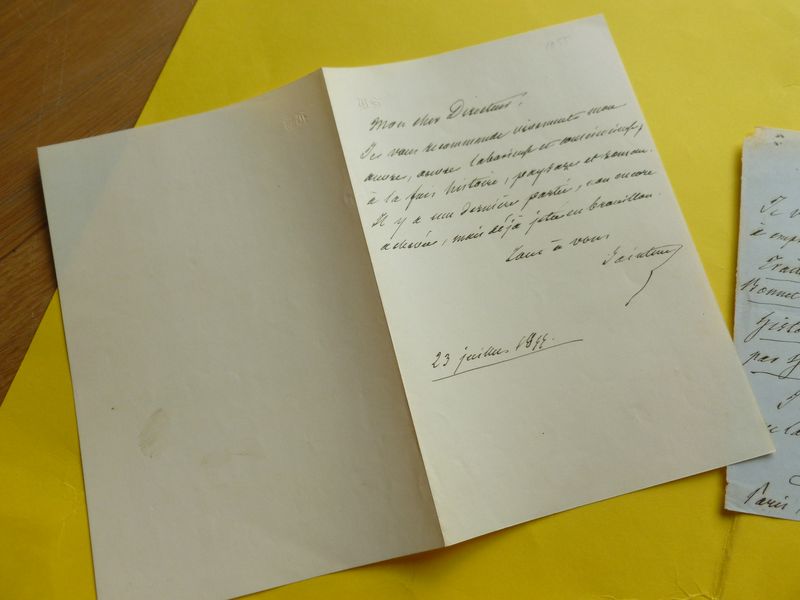 1855
Mon cher Directeur,
Je vous recommande vivement mon
œuvre, œuvre laborieuse et consciencieuse,
à la fois histoire, paysage et roman.
Il y a une dernière partie, non encore
achevée, mais déjà jetée en brouillon.
Tout à vous
Saintine
23 juillet 1855.
Je v
à emp
Trad
Bonne
Histo
par
J
Paris